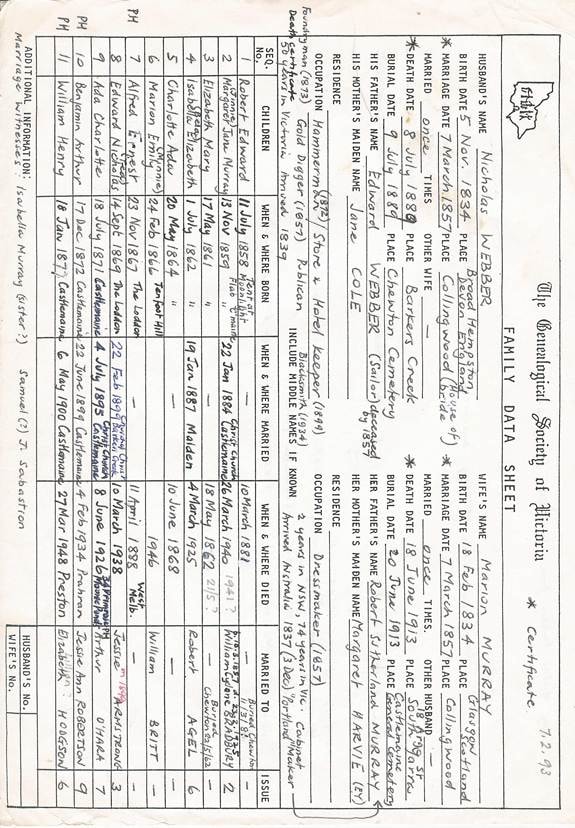 The Genealogical Society of Victoria
* Certificate
7.2.93
FAMILY DATA SHEET
HUSBAND'S NAME Nicholas WEBBER
BIRTH DATE 5 Nov. 1834 PLACE Broad Hempston Devon England
* MARRIAGE DATE 7 March 1857 PLACE Collingwood (House of Bride)
MARRIED once TIMES OTHER WIFE —
* DEATH DATE 8 July 1889 PLACE Barkers Creek
BURIAL DATE 9 July 1889 PLACE Chewton Cemetery
HIS FATHER'S NAME Edward WEBBER (Sailor) deceased by 1857
HIS MOTHER'S MAIDEN NAME Jane COLE
RESIDENCE
OCCUPATION Hammerman (1872) Store & Hotel Keeper (1894)
Foundryman (1873) Gold Digger (1857) Publican
Death certificate
50 years in Victoria Arrived 1839
WIFE'S NAME Marion MURRAY
BIRTH DATE 18 Feb 1834 PLACE Glasgow Scotland
* MARRIAGE DATE 7 March 1857 PLACE Collingwood
MARRIED once TIMES. OTHER HUSBAND —
* DEATH DATE 18 June 1913 PLACE South Yarra
BURIAL DATE 20 June 1913 PLACE Castlemaine General Cemetery
HER FATHER'S NAME Robert Sutherland MURRAY
HER MOTHER'S MAIDEN NAME Margaret HARVIE (EY)
RESIDENCE
OCCUPATION Dressmaker (1857)
Blacksmith (1934)
2 years in NSW, 74 years in Vic. Cabinet Maker
INCLUDE MIDDLE NAMES IF KNOWN Arrived Australia 1837 (3 Dec) "Portland"
SEQ. No. CHILDREN WHEN & WHERE BORN WHEN & WHERE MARRIED WHEN & WHERE DIED MARRIED TO ISSUE
1 Robert Edward 11 July 1858 — 10 March 1881 Buried Chewton 11/3/81 —
2 Margaret Jane Murray (Jinnie) 13 Nov 1859 22 Jan 1884 Christ Church Castlemaine 26 March 1940 1941? William BRADBURY 2
3 Elizabeth Mary 17 May 1861 " — 18 May 1862 21/5? Buried Chewton 20/5/62 —
4 Isabella Elizabeth 1 July 1862 " 19 Jan 1887 Maldon 4 March 1925 Robert AGEL 6
5 Charlotte Ada 20 May 1864 " — 10 June 1868 — —
6 Marion Emily (Mynnie) 24 Feb 1866 Ten Foot Hill 1946 William BRITT —
PH 7 Alfred Ernest 23 Nov 1867 The Loddon — 11 April 1898 West Melb. — —
8 Edward Nicholas 14 Sept 1869 The Loddon 22 Feb 1899 10 March 1938 Jessie ARMSTRONG 3
9 Ada Charlotte 18 July 1871 Castlemaine 4 July 1895 Christ Church Castlemaine 8 June 1926 Arthur O'HARA 7
PH 10 Benjamin Arthur 17 Dec 1872 Castlemaine 22 June 1899 Castlemaine 4 Feb 1934 Prahran Jessie Ann ROBERTSON 9
PH 11 William Henry 18 Jan 1877 Castlemaine 6 May 1900 Castlemaine 27 Mar 1948 Preston Elizabeth HODGSON 6
ADDITIONAL INFORMATION:
Marriage Witnesses: Isabella Murray (sister?) Samuel (?) J. Sabastion
HUSBAND'S No.
WIFE'S No.